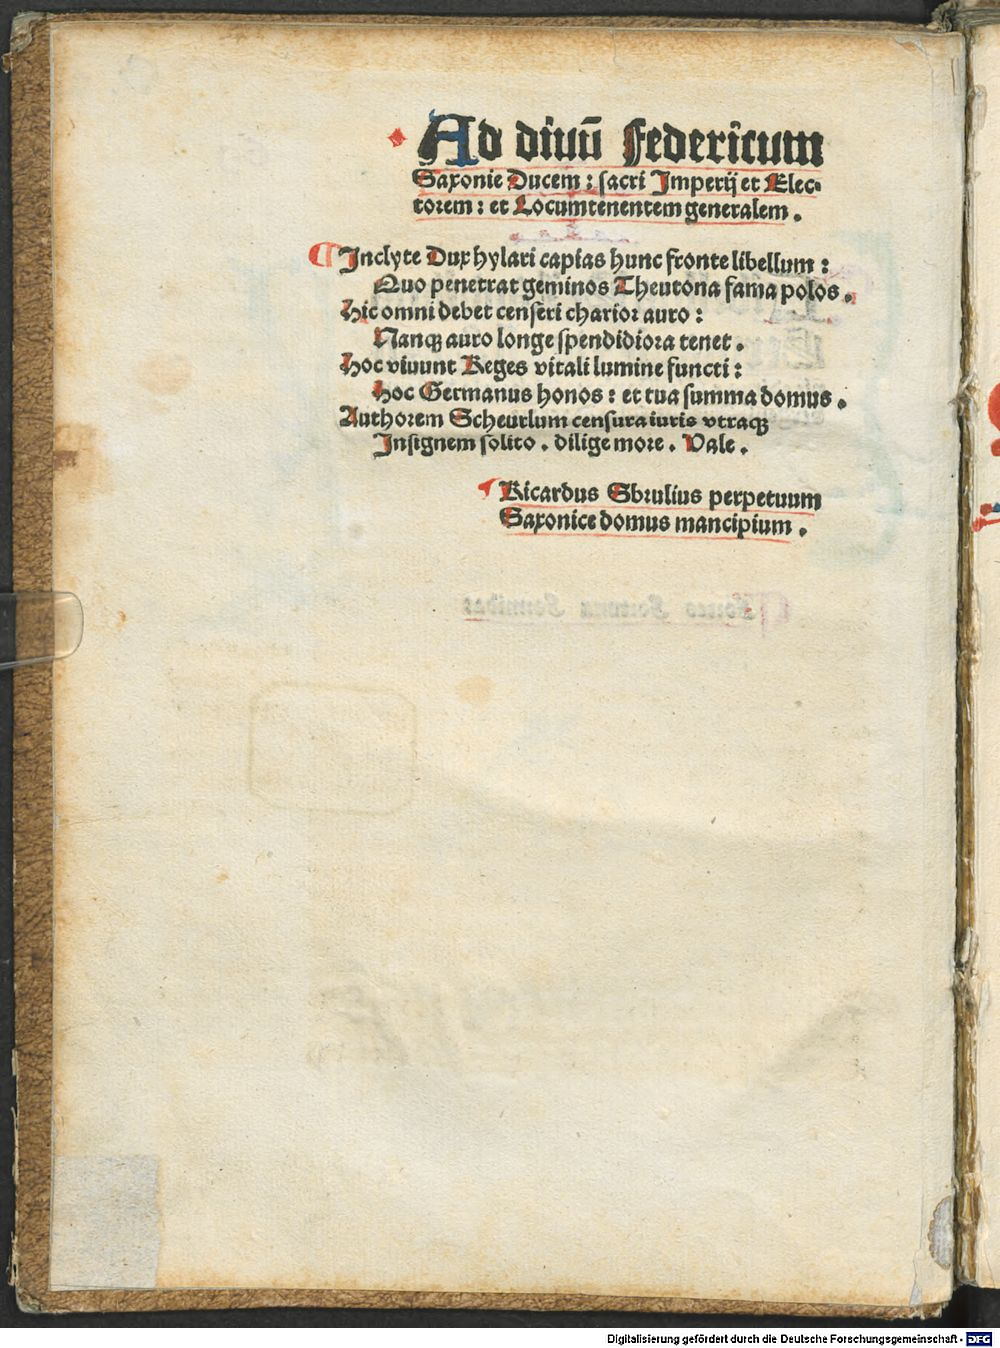 Ad diuū Federicum
Saxonie Ducem: sacri Imperij et Elec-
torem: et Locumtenentem generalem.
Inclyte Dux hylari capias hunc fronte libellum:
Quo penetrat geminos Theutona fama polos.
Hic omni debet censeri charior auro:
Nanqꝫ auro longe spendidiora tenet.
Hoc viuunt Reges vitali lumine functi:
Hoc Germanus honos: et tua summa domus.
Authorem Scheurlum censura iuris vtraqꝫ
Insignem solito. dilige more. Vale.
Ricardus Sbrulius perpetuum
Saxonice domus mancipium.
Digitalisierung gefördert durch die Deutsche Forschungsgemeinschaft - DFG